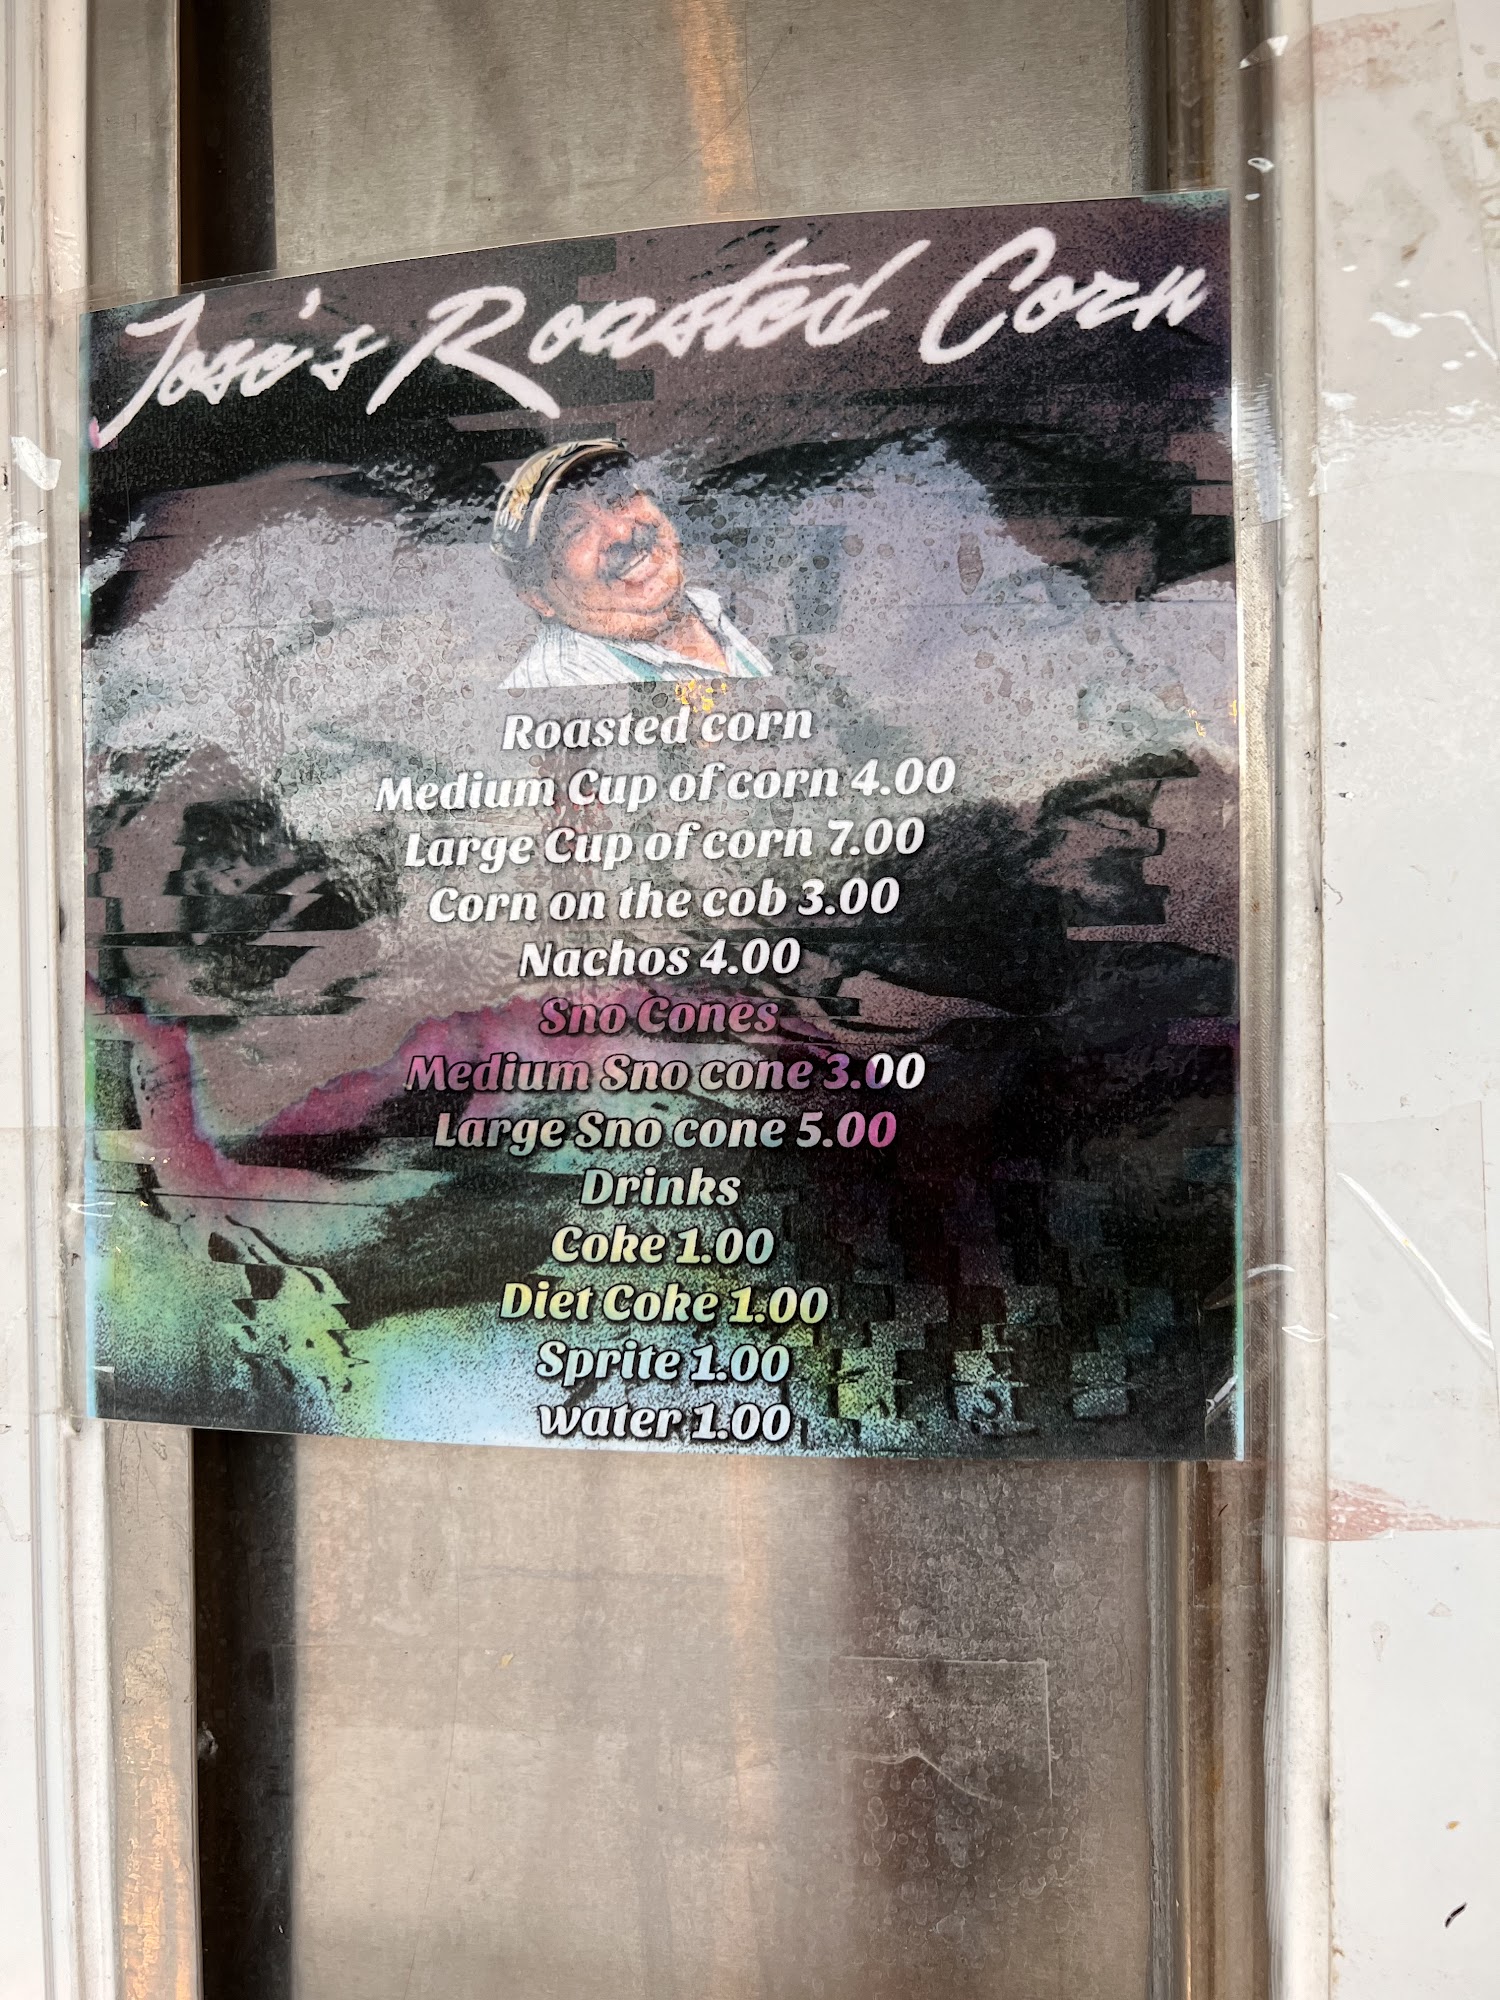 Jose's Roasted Corn
Roasted corn
Medium Cup of corn 4.00
Large Cup of corn 7.00
Corn on the cob 3.00
Nachos 4.00
Sno Cones
Medium Sno cone 3.00
Large Sno cone 5.00
Drinks
Coke 1.00
Diet Coke 1.00
Sprite 1.00
water 1.00